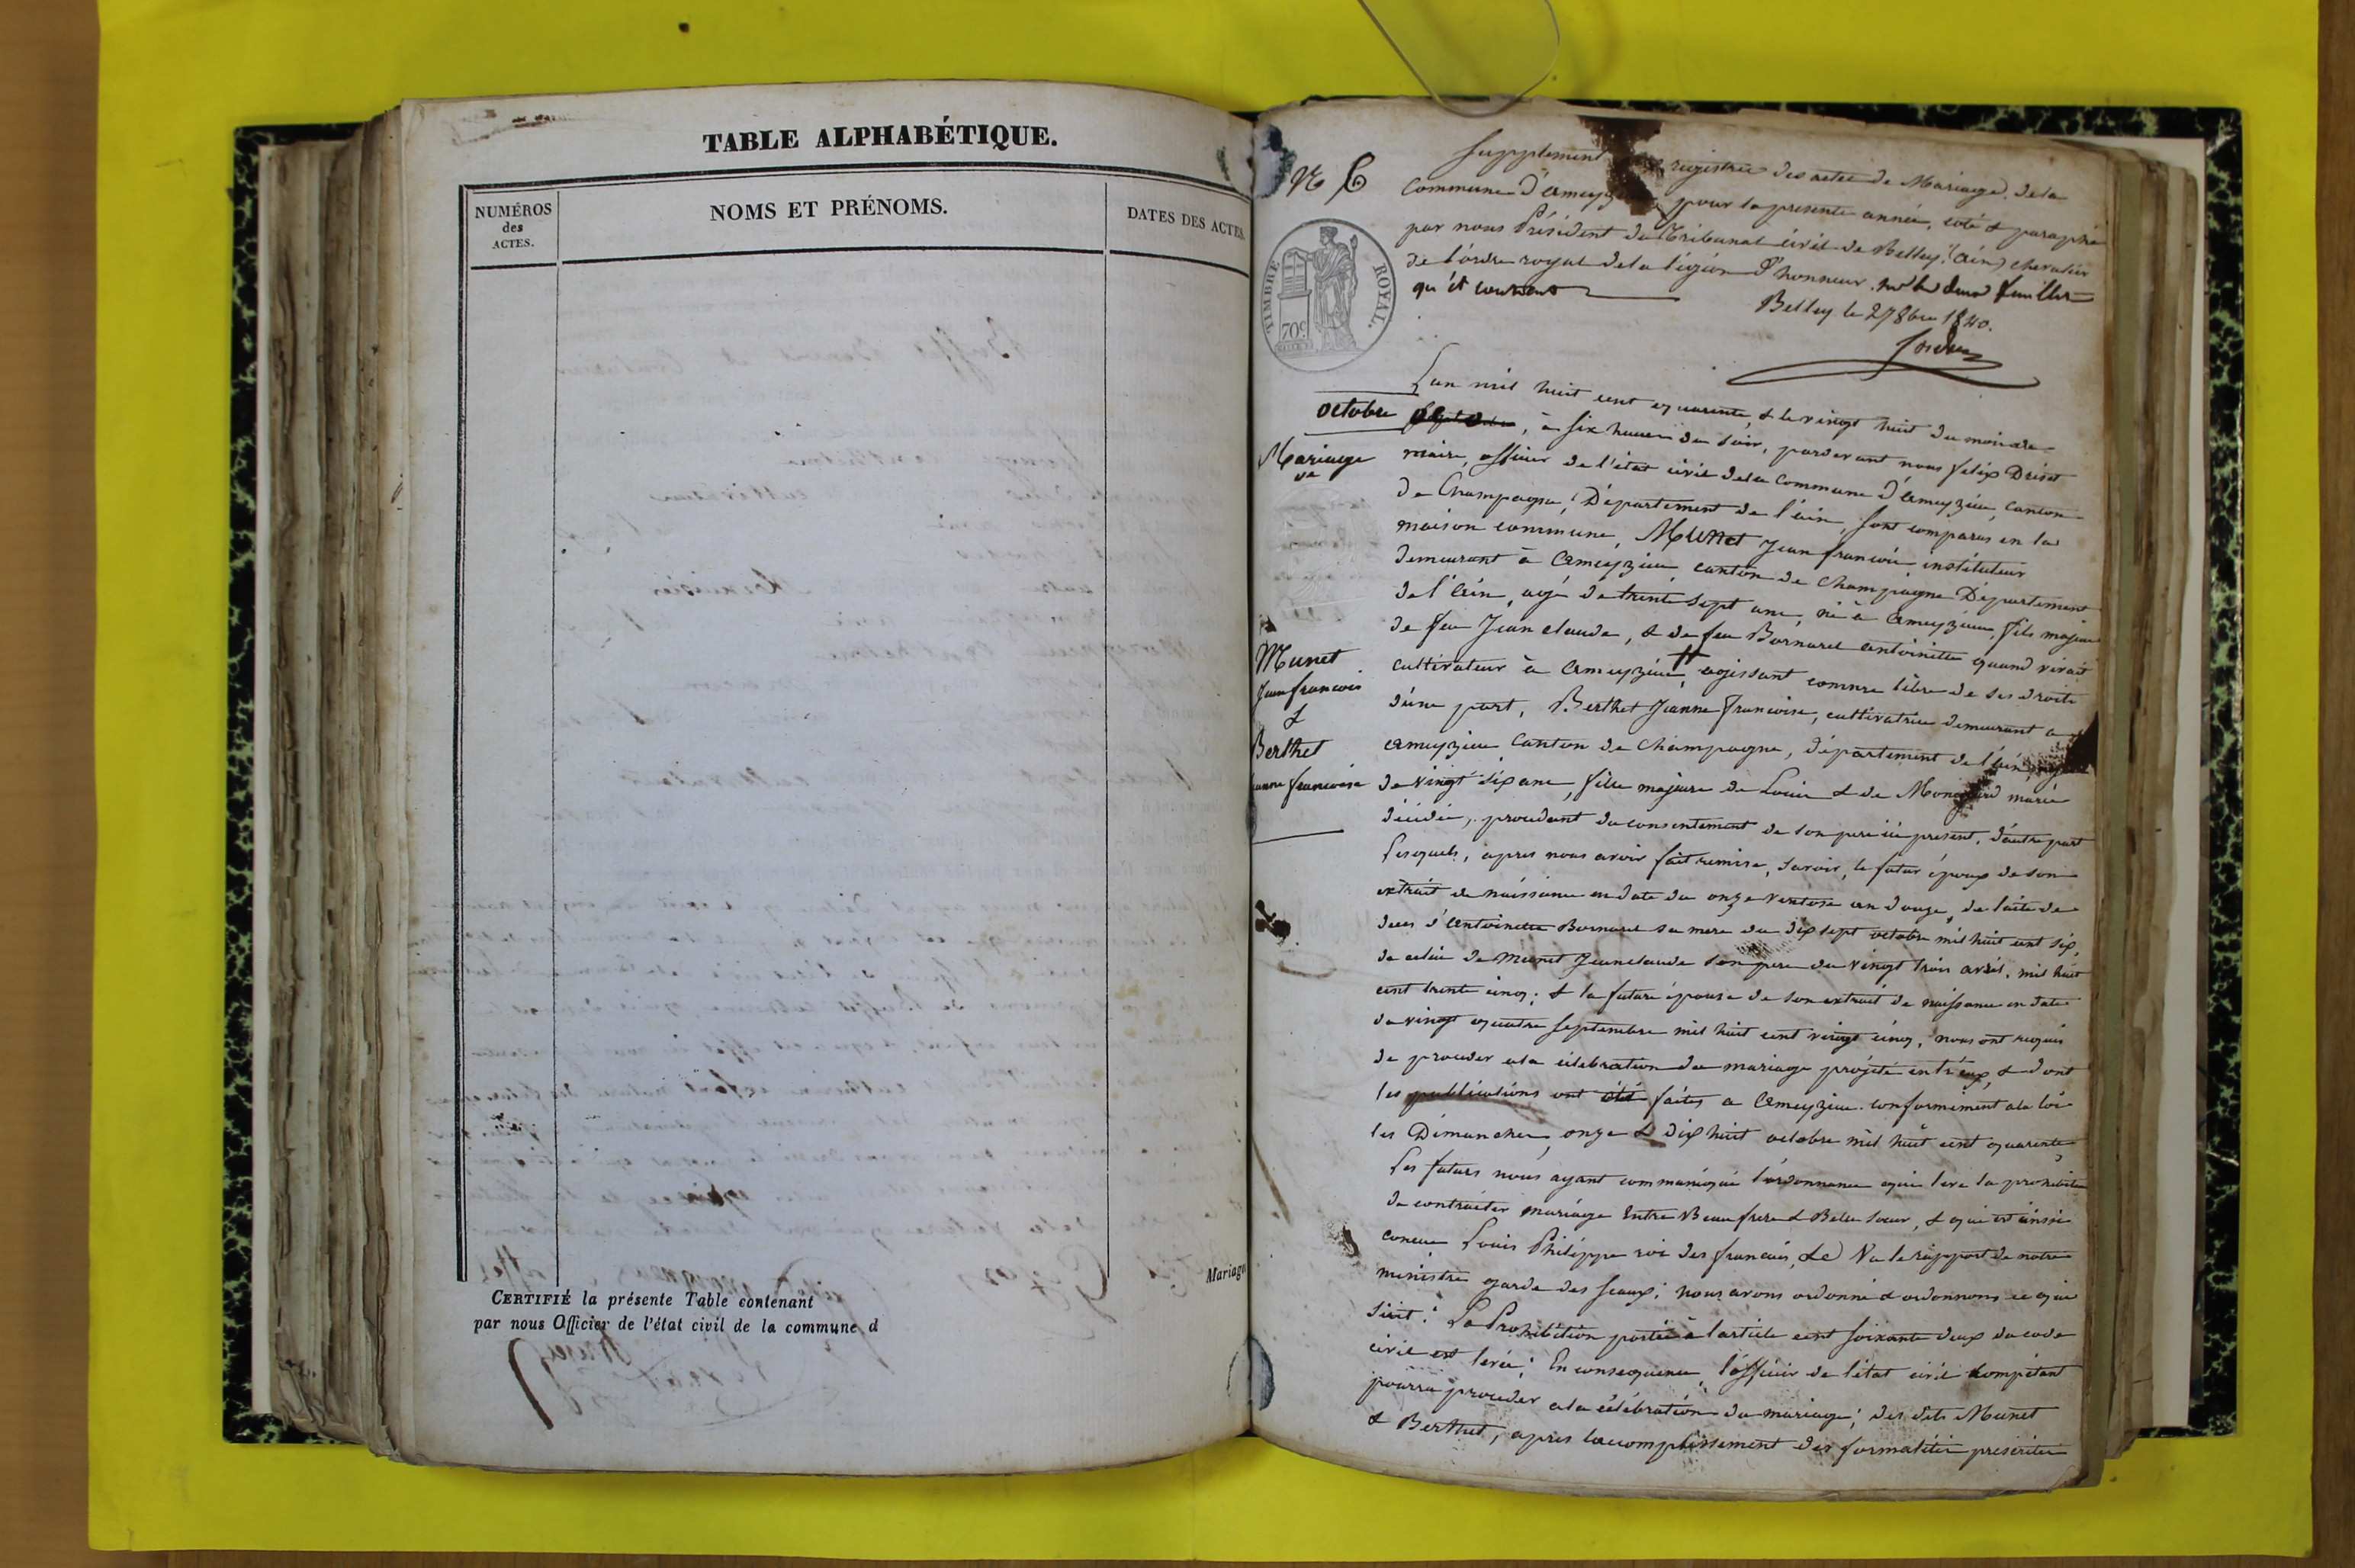 TABLE ALPHABÉTIQUE.
NUMÉROS
des
ACTES.
NOMS ET PRÉNOMS.
DATES DES ACTES.
Mariage
CERTIFIÉ la présente Table contenant
par nous Officier de l'état civil de la commune d
N 6
Supplement registre des actes de Mariage de la
Commune d'ameyzieu pour la presente année, coté & paraphé
par nous Président du Tribunal civil de Belley (ain) chevalier
de l'ordre royal de la légion d'honneur deux feuillets
Belley le 27 8bre 1840.
TIMBRE ROYAL.
70c
L'an mil huit cent quarante, & le vingt huit du mois de
octobre, à six heures du soir, pardevant nous felix Driset
Mariage
de
maire, officier de l'état civil de la Commune d'ameyzieu, canton
de Champagne, Département de l'ain, sont comparus en la
maison commune, Munet Jean francois instituteur
demeurant à ameyzieu canton de Champagne Département
de l'ain, agé de trente sept ans, né à ameyzieu, fils majeur
de feu Jean claude, & de feu Bornard antoinette quand vivait
Munet
Jean francois
&
Berthet
anne francoise
cultivateur à ameyzieu, agissant comme libre de ses droits
d'une part, Berthet Jeanne francoise, cultivatrice demeurant a
ameyzieu Canton de Champagne, département de l'ain, agée
de vingt six ans, fille majeure de Louis & de marie
décédée, procedant du consentement de son pere ici present, d'autre part
Lesquels, apres nous avoir fait remise, savoir, le futur époux de son
extrait de naissance en date du onze ventose an douze, de l'acte de
deces d'antoinette Bornard sa mere du dix sept octobre mil huit cent six,
de celui de Munet Jean claude son pere du vingt trois avril mil huit
cent trente cinq; & la future épouse de son extrait de naissance en date
du vingt quatre septembre mil huit cent vingt cinq, nous ont requis
de proceder a la célébration du mariage projété entr'eux, & dont
les publications ont été faites a ameyzieu conformément a la loi
les Dimanches onze & dix huit octobre mil huit cent quarante,
Les futurs nous ayant communiqué l'ordonnance qui leve la prohibition
de contracter mariage Entre Beau frere & Belle soeur, & qui est ainsi
concue Louis Philippe roi des francais, &c Vu le rapport de notre
ministre garde des sceaux; nous avons ordonné & ordonnons ce qui
suit: La Prohibition portée à l'article cent soixante deux du code
civil est levée; En consequence, l'officier de l'état civil compétant
pourra proceder a la célébration du mariage; des dits Munet
& Berthet, apres l'accomplissement des formalités prescrites